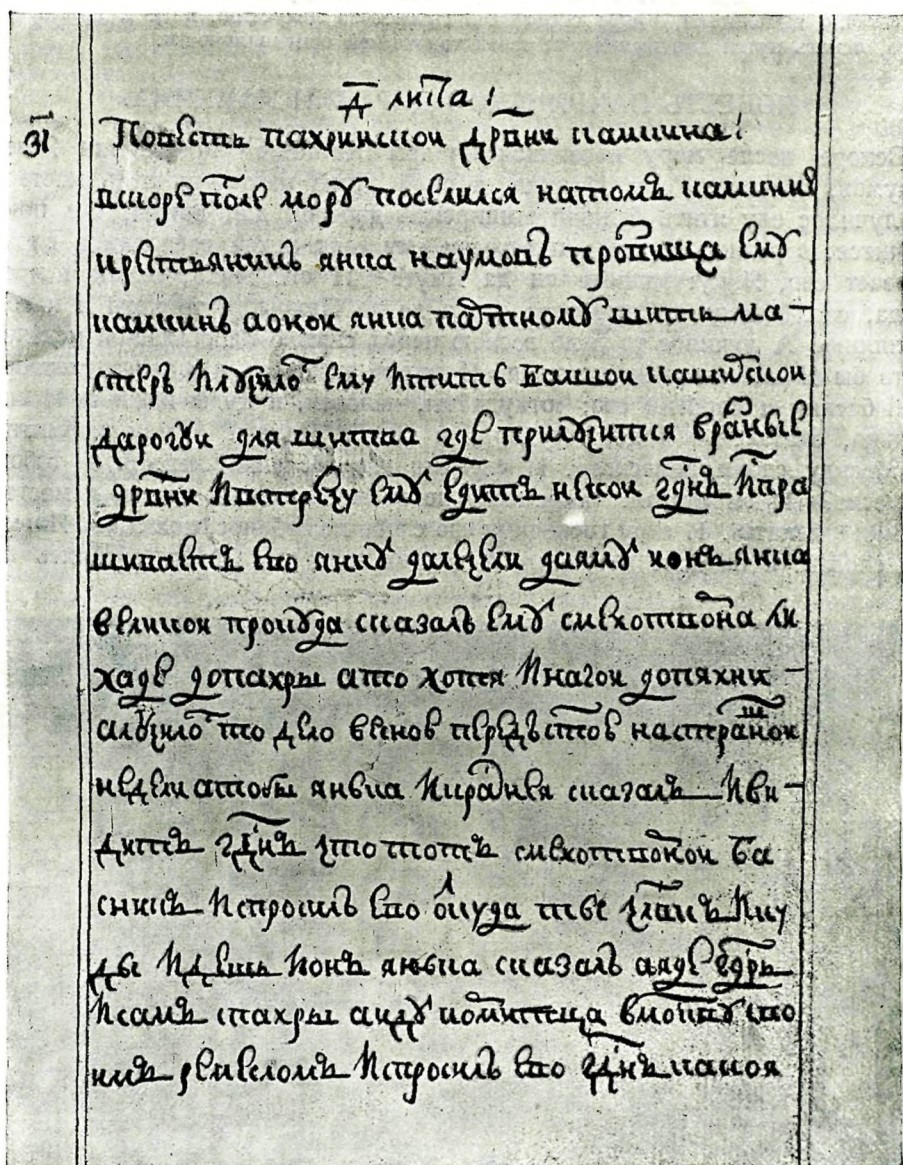 д҃ листа!
з҃і
Повесть пахринскои дрвни камкина!
вскоре после мору поселился натомъ камкине
крестьянинъ янка наумовъ прозвища ему
камкинъ
янка
шить ма-
стеръ Ислучилос ему Ититъ Болшои каширскои
дарогои для шитва где прилучится вразные
дрвни Ивстречу ему едитъ некои гднъ Испра
шиваетъ ево янку далечели даяму Ионъ янка
великои пройда сказалъ ему смехотворна ли
хаде допахры ато хотя Инагои допяхни
случилос то дело
передъ
настрашнои
недели атобы янька Инраднея сказалъ Иви-
дитъ гднъ что тотъ смехотворнои ба
сникъ Испросилъ ево откуда тве члвкъ Ику
ды Идешь Ионъ янька сказалъ аяде гдрь
Исамъ спахры аиду кормитца вмоскву сво
имъ ремесломъ Испросилъ ево гднъ какоя